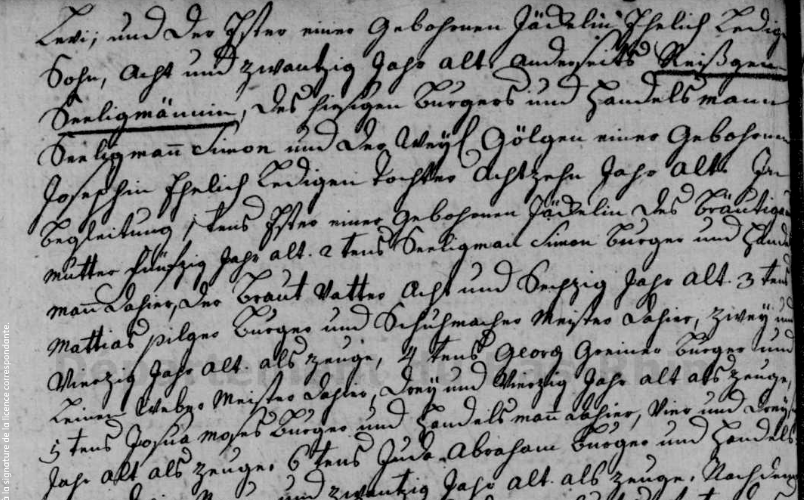 Levi, und der Ester einer Gebohrnen Jäckelin Ehelich Ledig
Sohn, Acht und zwantzig Jahr alt, anderseits Reißgen
Seeligmännin, des hiesigen Burgers und Handelsmann
Seeligman̄ Simon und der Weyl Gölgen einer Gebohrnen
Josephin Ehelich Ledigen Tochter Achtzehn Jahr alt. In
Begleitung 1tens Ester einer gebohrnen Jäckelin des Bräutigam
mutter fünfzig Jahr alt. 2tens Seeligman Simon Burger und Handels
man̄ dahier, der Braut Vatter Acht und Sechzig Jahr alt. 3tens
Mattias pilger Burger und Schuhmacher Meister dahier, zwey und
Vierzig Jahr alt. als zeuge, 4tens Georg Greiner Burger und
Leinen Weber Meister dahier, drey und Vierzig Jahr alt als zeuge,
5tens Josua moses Burger und Handelsman̄ dahier, vier und drey
Jahr alt als zeuge. 6tens Juda Abraham Burger und Handels
und zwantzig Jahr alt. als zeuge. Nachdem
à la signature de la licence correspondante.